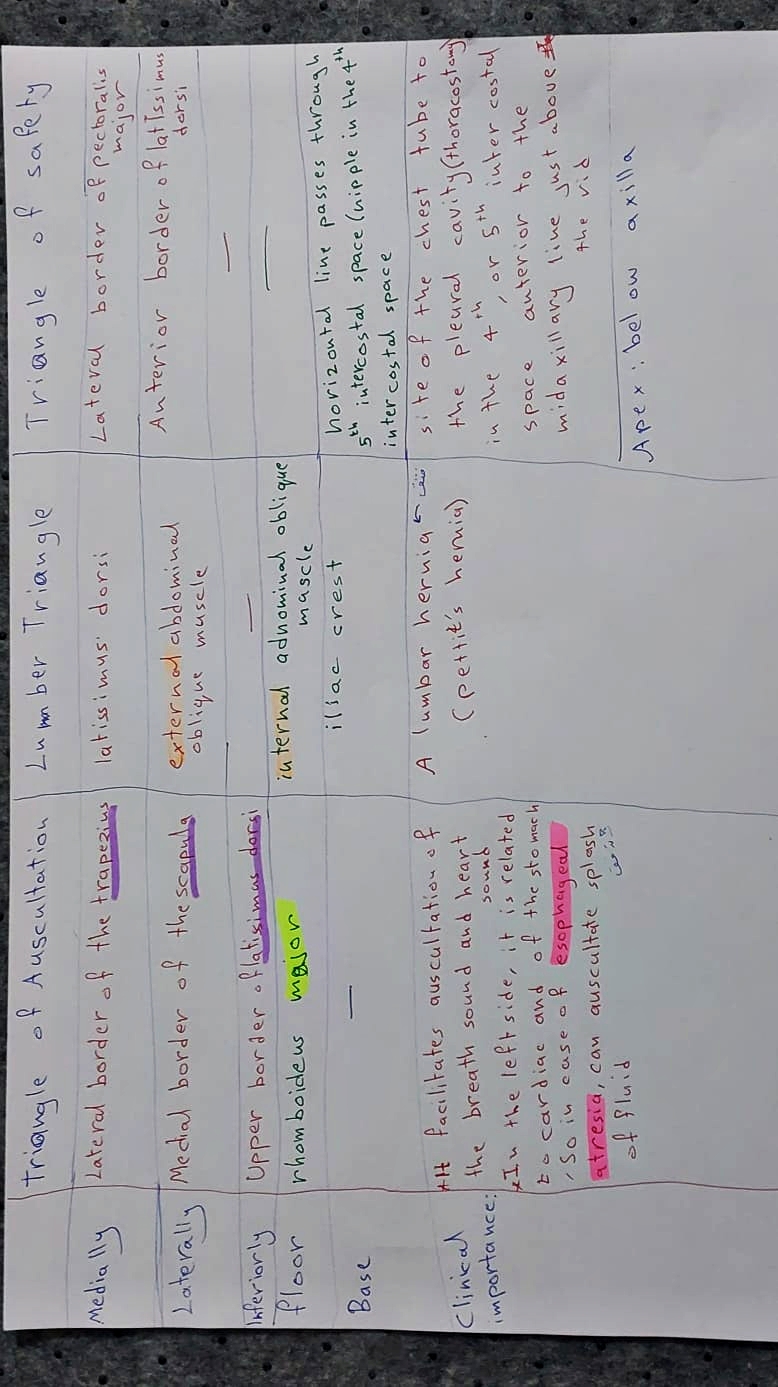 Triangle of Auscultation
Lumber Triangle
Triangle of safety
Medially
Lateral border of the trapezius
latissimus dorsi
Lateral border of pectoralis
major
Laterally
Medial border of the scapula
external abdominal
oblique muscle
Anterior border of latissimus
dorsi
Inferiorly
Upper border of latisimus dorsi
—
—
floor
rhomboideus major
internal adnominal oblique
mascle
—
Base
—
iliac crest
horizontal line passes through
5th intercostal space (nipple in the 4th
intercostal space
Clinical
importance:
*It facilitates auscultation of
the breath sound and heart
sound
*In the left side, it is related
to cardiac and of the stomach
, So in case of esophageal
atresia, can auscultate splash
of fluid
A lumbar hernia ←
(pettit's hernia)
site of the chest tube to
the pleural cavity (thoracostomy)
in the 4th, or 5th inter costal
space anterior to the
midaxillary line just above
the rid
Apex: below axilla